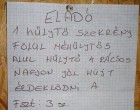 ELADÓ
1 HŰLYTŐ SZEKRÉNY
FÖLÜL MÉHŰLYTŐS
ALUL HŰLYTŐ 4 RÁCSOS
NAGYON JÓL HŰST
ÉRDEKLŐDNI A
Fszt. 3 sz.